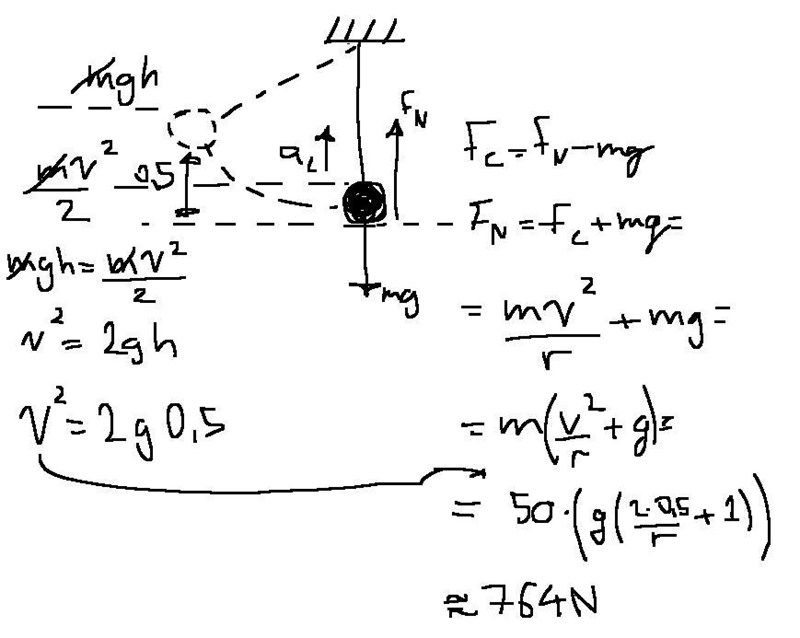 mgh
mv²/2
0.5
a_c
F_N
mg
mgh = mv²/2
v² = 2gh
v² = 2g 0,5
F_c = F_N - mg
F_N = F_c + mg =
= mv²/r + mg =
= m(v²/r + g) =
= 50·(g(2·0,5/r + 1))
≈ 764N